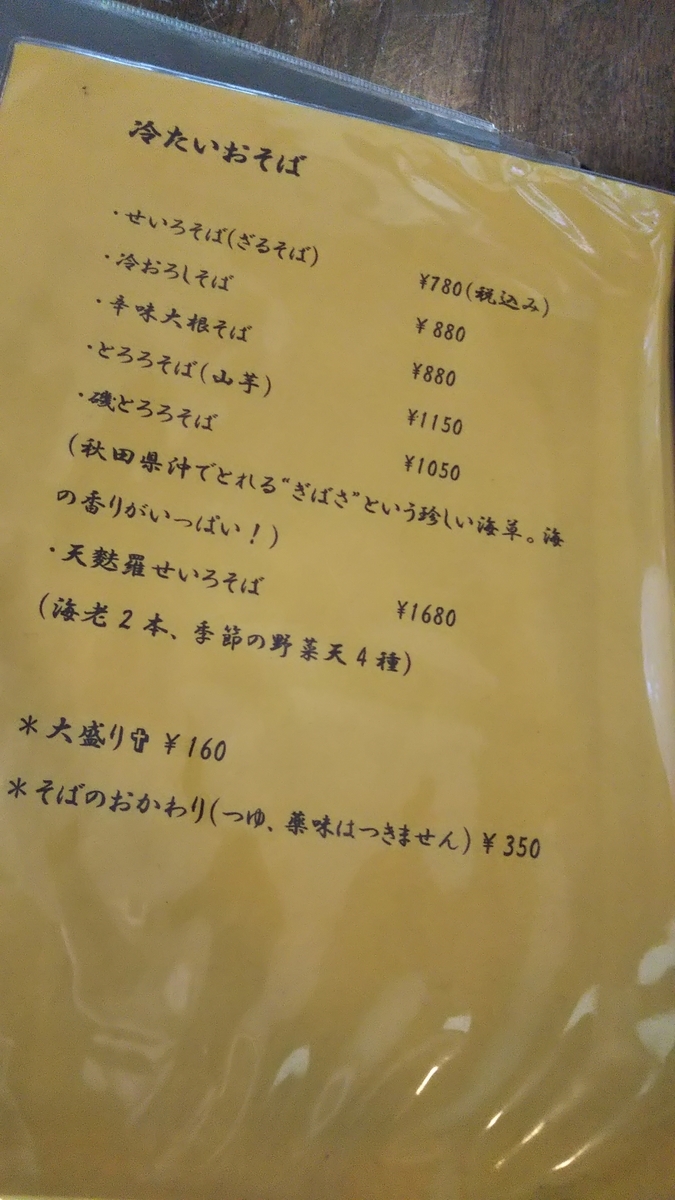 冷たいおそば
・せいろそば(ざるそば) ¥780(税込み)
・冷おろしそば ¥880
・辛味大根そば ¥880
・とろろそば(山芋) ¥1150
・磯とろろそば ¥1050
(秋田県沖でとれる“ぎばさ”という珍しい海草。海
の香りがいっぱい！)
・天麩羅せいろそば ¥1680
(海老2本、季節の野菜天4種)
＊大盛り✞ ¥160
＊そばのおかわり(つゆ、薬味はつきません) ¥350